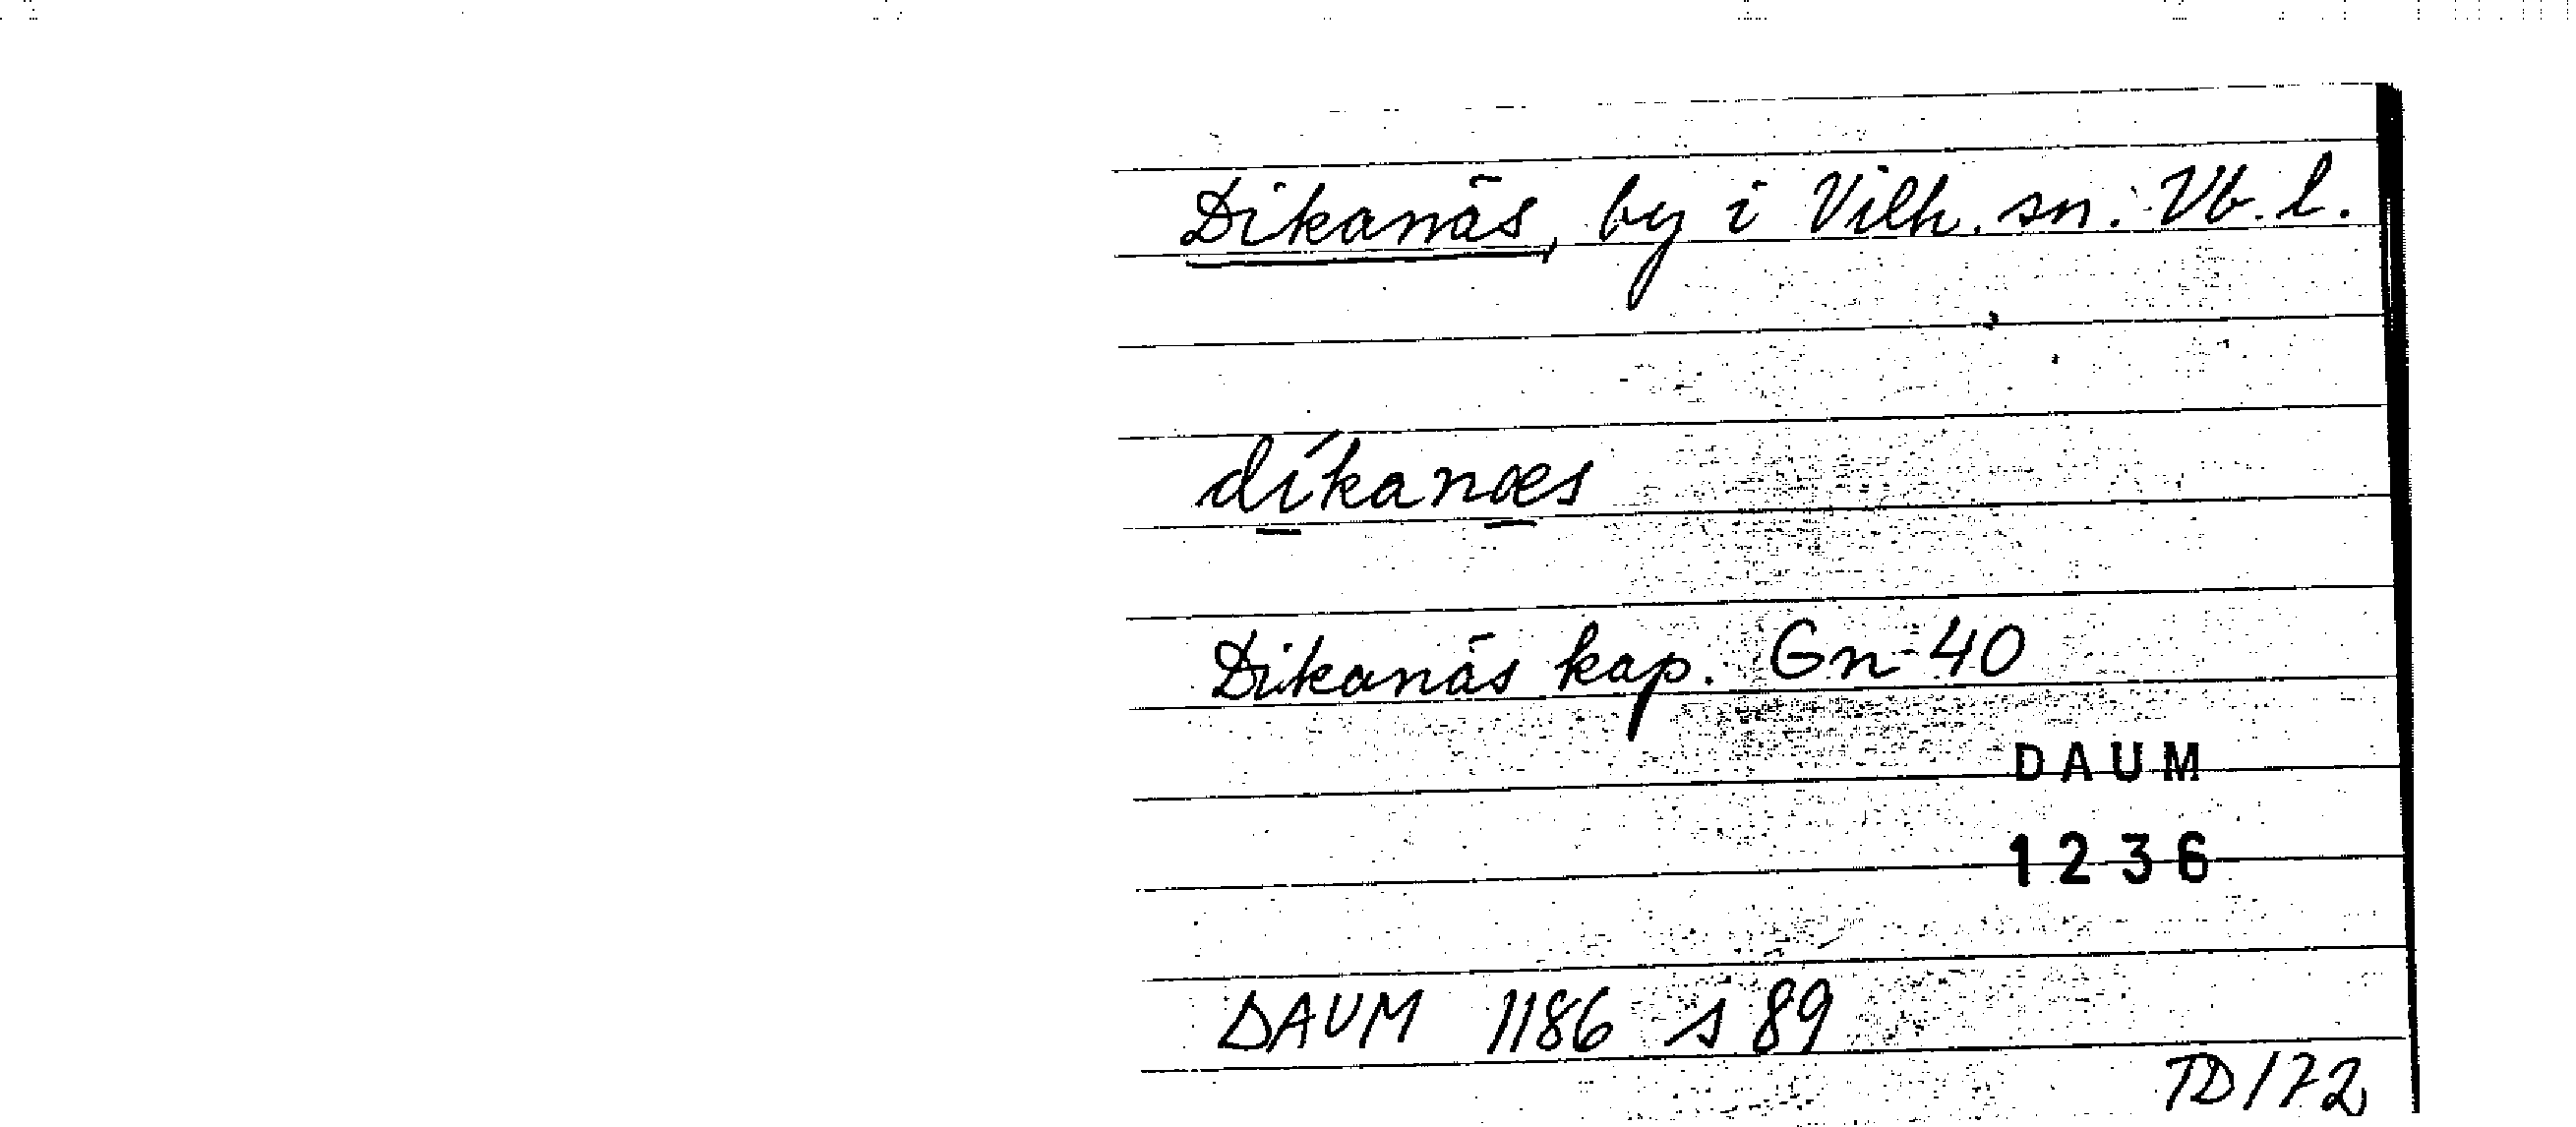 Dikanäs, by i Vilh. sn. Vb. l.
díkanæs
Dikanäs kap. Gn 40
DAUM
1236
DAUM 1186 s 89
TD/72